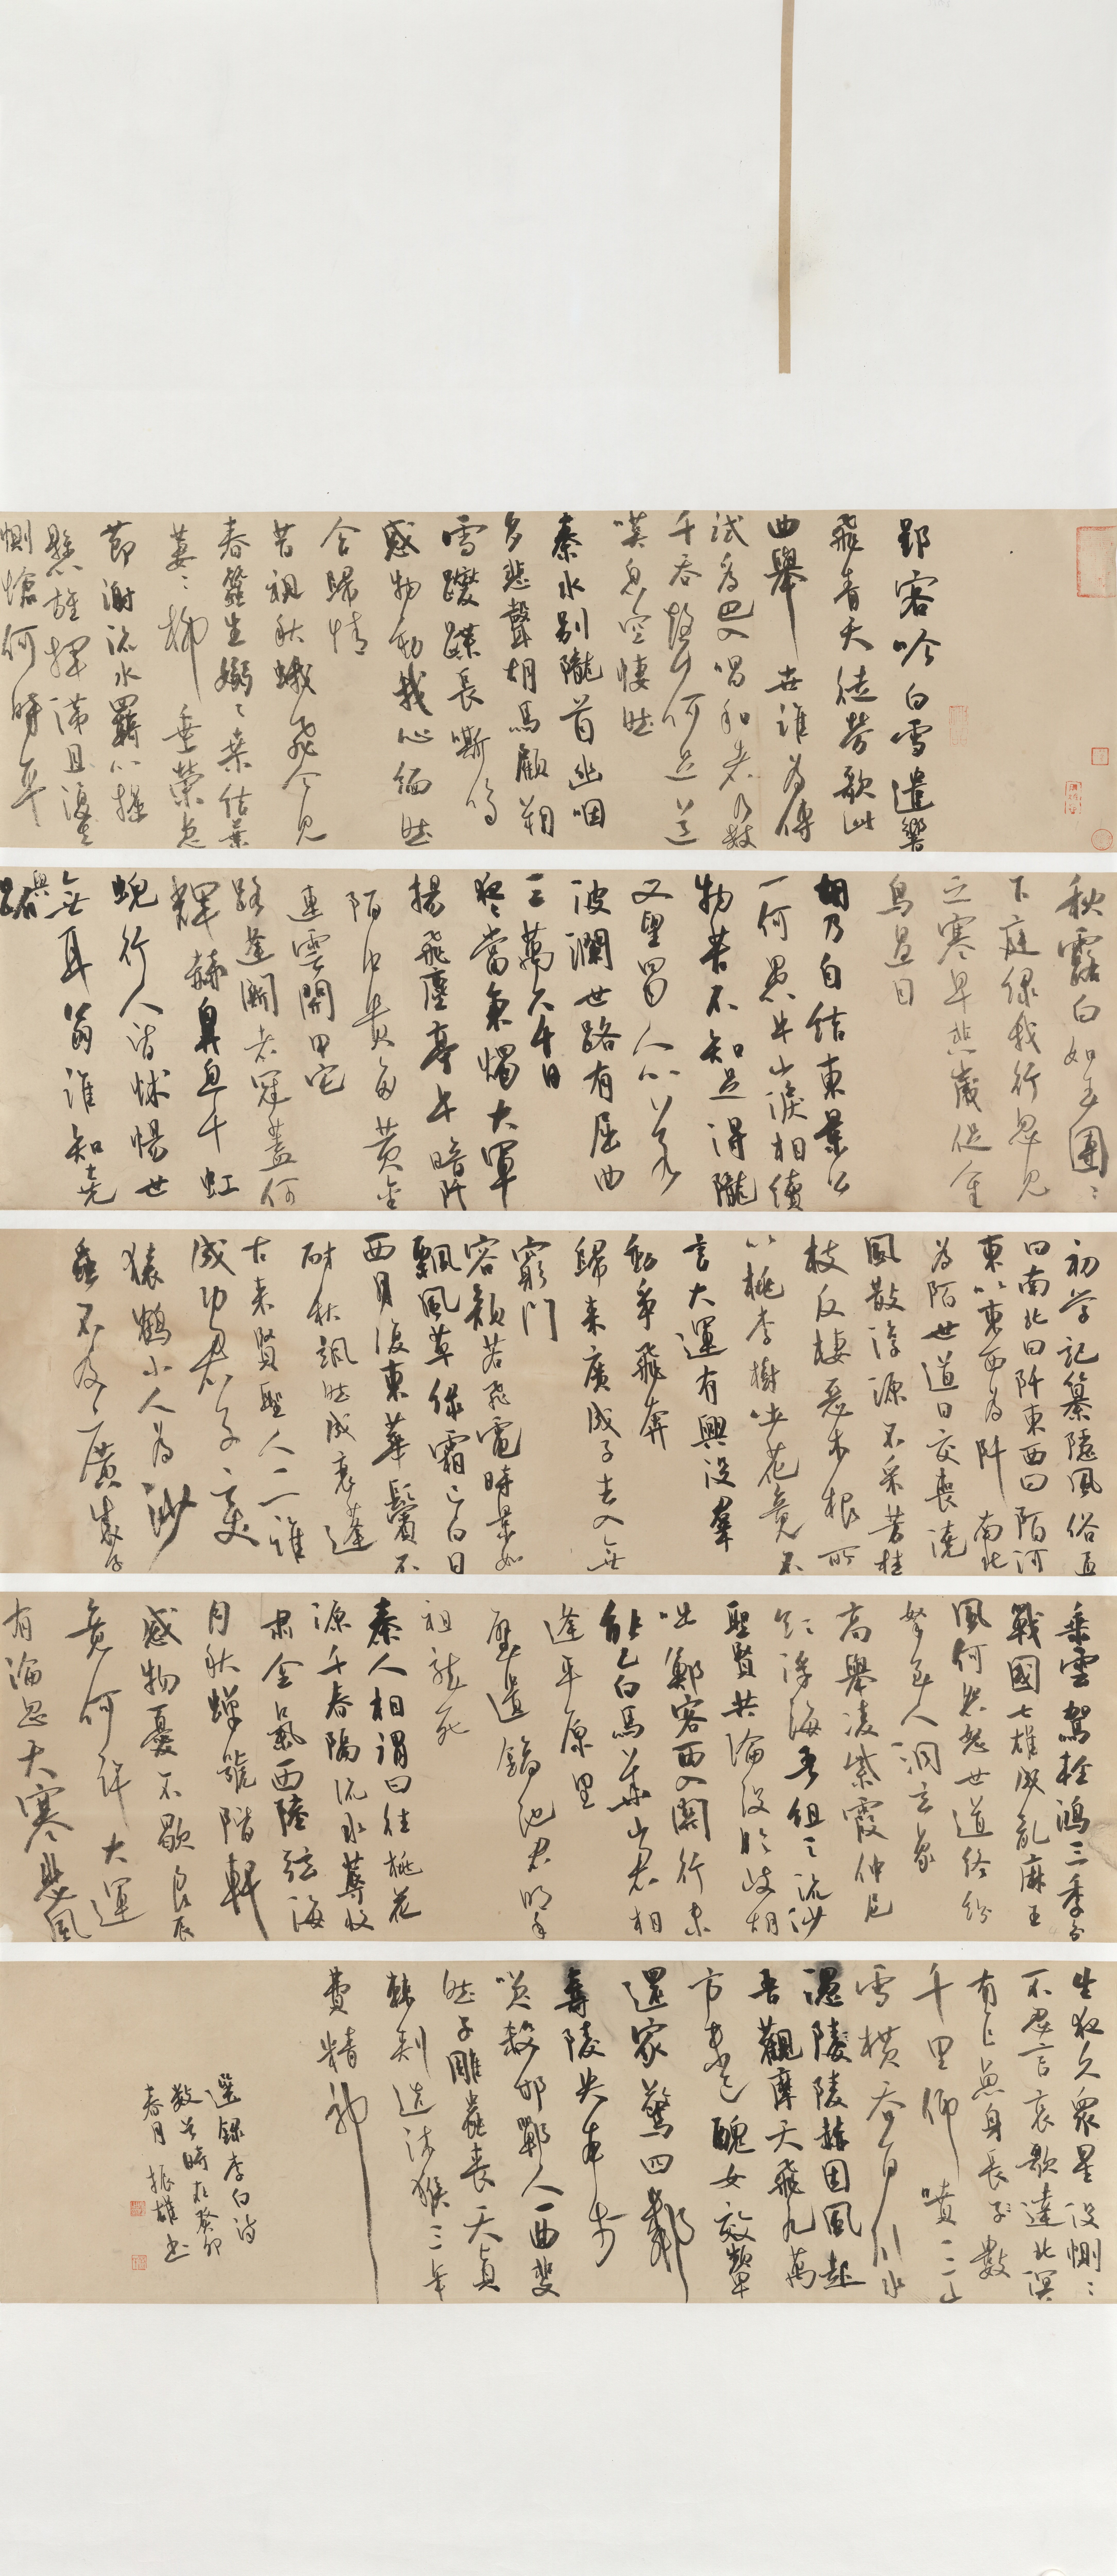 郢客吟白雪遺響
飛青天徒勞歌此
曲舉世誰為傳
試為巴人唱和者乃數
千吞聲何足道
嘆息空悽然
秦水別隴首幽咽
多悲聲胡馬顧朔
雪躞蹀長嘶鳴
感物動我心緬然
含歸情
昔視秋蛾飛今見
春蠶生嫋嫋桑結葉
萋萋柳垂榮急
節謝流水羈心搖
懸旌揮涕且復去
惻愴何時平
秋露白如玉團團
下庭綠我行忽見
之寒早悲歲促
鳥過目
胡乃自結束景公
一何愚牛山淚相續
物苦不知足得隴
又望蜀人心若
波瀾世路有屈曲
三萬六千日
夜當秉燭大車
揚飛塵亭午暗阡
陌中貴多黃金
連雲開甲宅
路逢鬥者冠蓋何
輝赫鼻息干虹
蜺行人皆怵惕世
無耳翁誰知堯
與跖
初學記纂隱風俗通
曰南北曰阡東西曰陌河
東以東西為阡南北
為陌世道日交喪澆
風散淳源不采芳桂
枝反棲惡木根所
以桃李樹吐花竟不
言大運有興沒羣
動爭飛奔
歸來廣成子去入無
窮門
容顏若飛電時景如
飄風草綠霜已白日
西月復東華鬢不
耐秋颯然成衰蓬
古來賢聖人一一誰
成功君子變
猿鶴小人為沙
蟲不及廣成子
乘雲駕輕鴻三季分
戰國七雄成亂麻王
風何怨怒世道終紛
拏至人洞玄象
高舉凌紫霞仲尼
欲浮海吾祖之流沙
聖賢共淪沒臨歧胡
咄鄭客西入關行未
能已白馬華山君相
逢平原里
璧遺鎬池君明年
祖龍死
秦人相謂曰往桃花
源千春隔流水蓐收
肅金氣西陸弦海
月秋蟬號階軒
感物憂不歇良辰
竟何許大運
有淪忽天寒悲風
生夜久眾星沒惻惻
不忍言哀歌達北溟
有巨魚身長數
千里仰噴三山
雪橫吞百川水
憑陵赫因風起
吾觀摩天飛九萬
方未已醜女效顰
還家驚四鄰
壽陵失本步
笑殺邯鄲人一曲斐
然子雕蟲喪天真
棘刺造沐猴三年
費精神
選錄李白詩
數首時在癸卯
春月振雄書